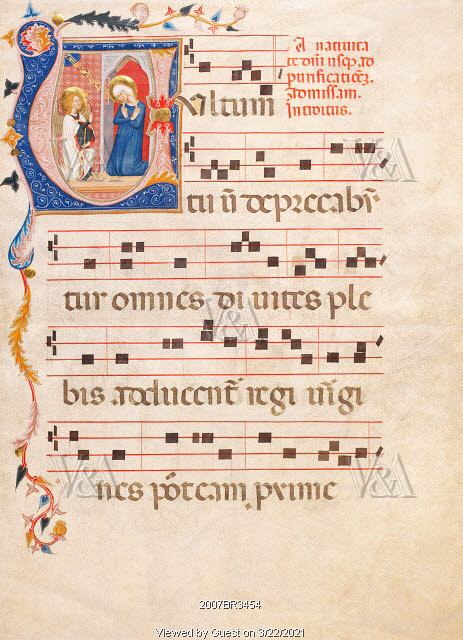 A nativita
te dm̄ usq; ad
purificatioēz.
Ad missam.
Introitus.
Vultum
tuū deprecabū
tur omnes diuites ple
bis adducent̄ regi uirgi
nes pōt eam. prime
V&A
V&A
V&A
V&A
V&A
V&A
2007BR3454
Viewed by Guest on 3/22/2021